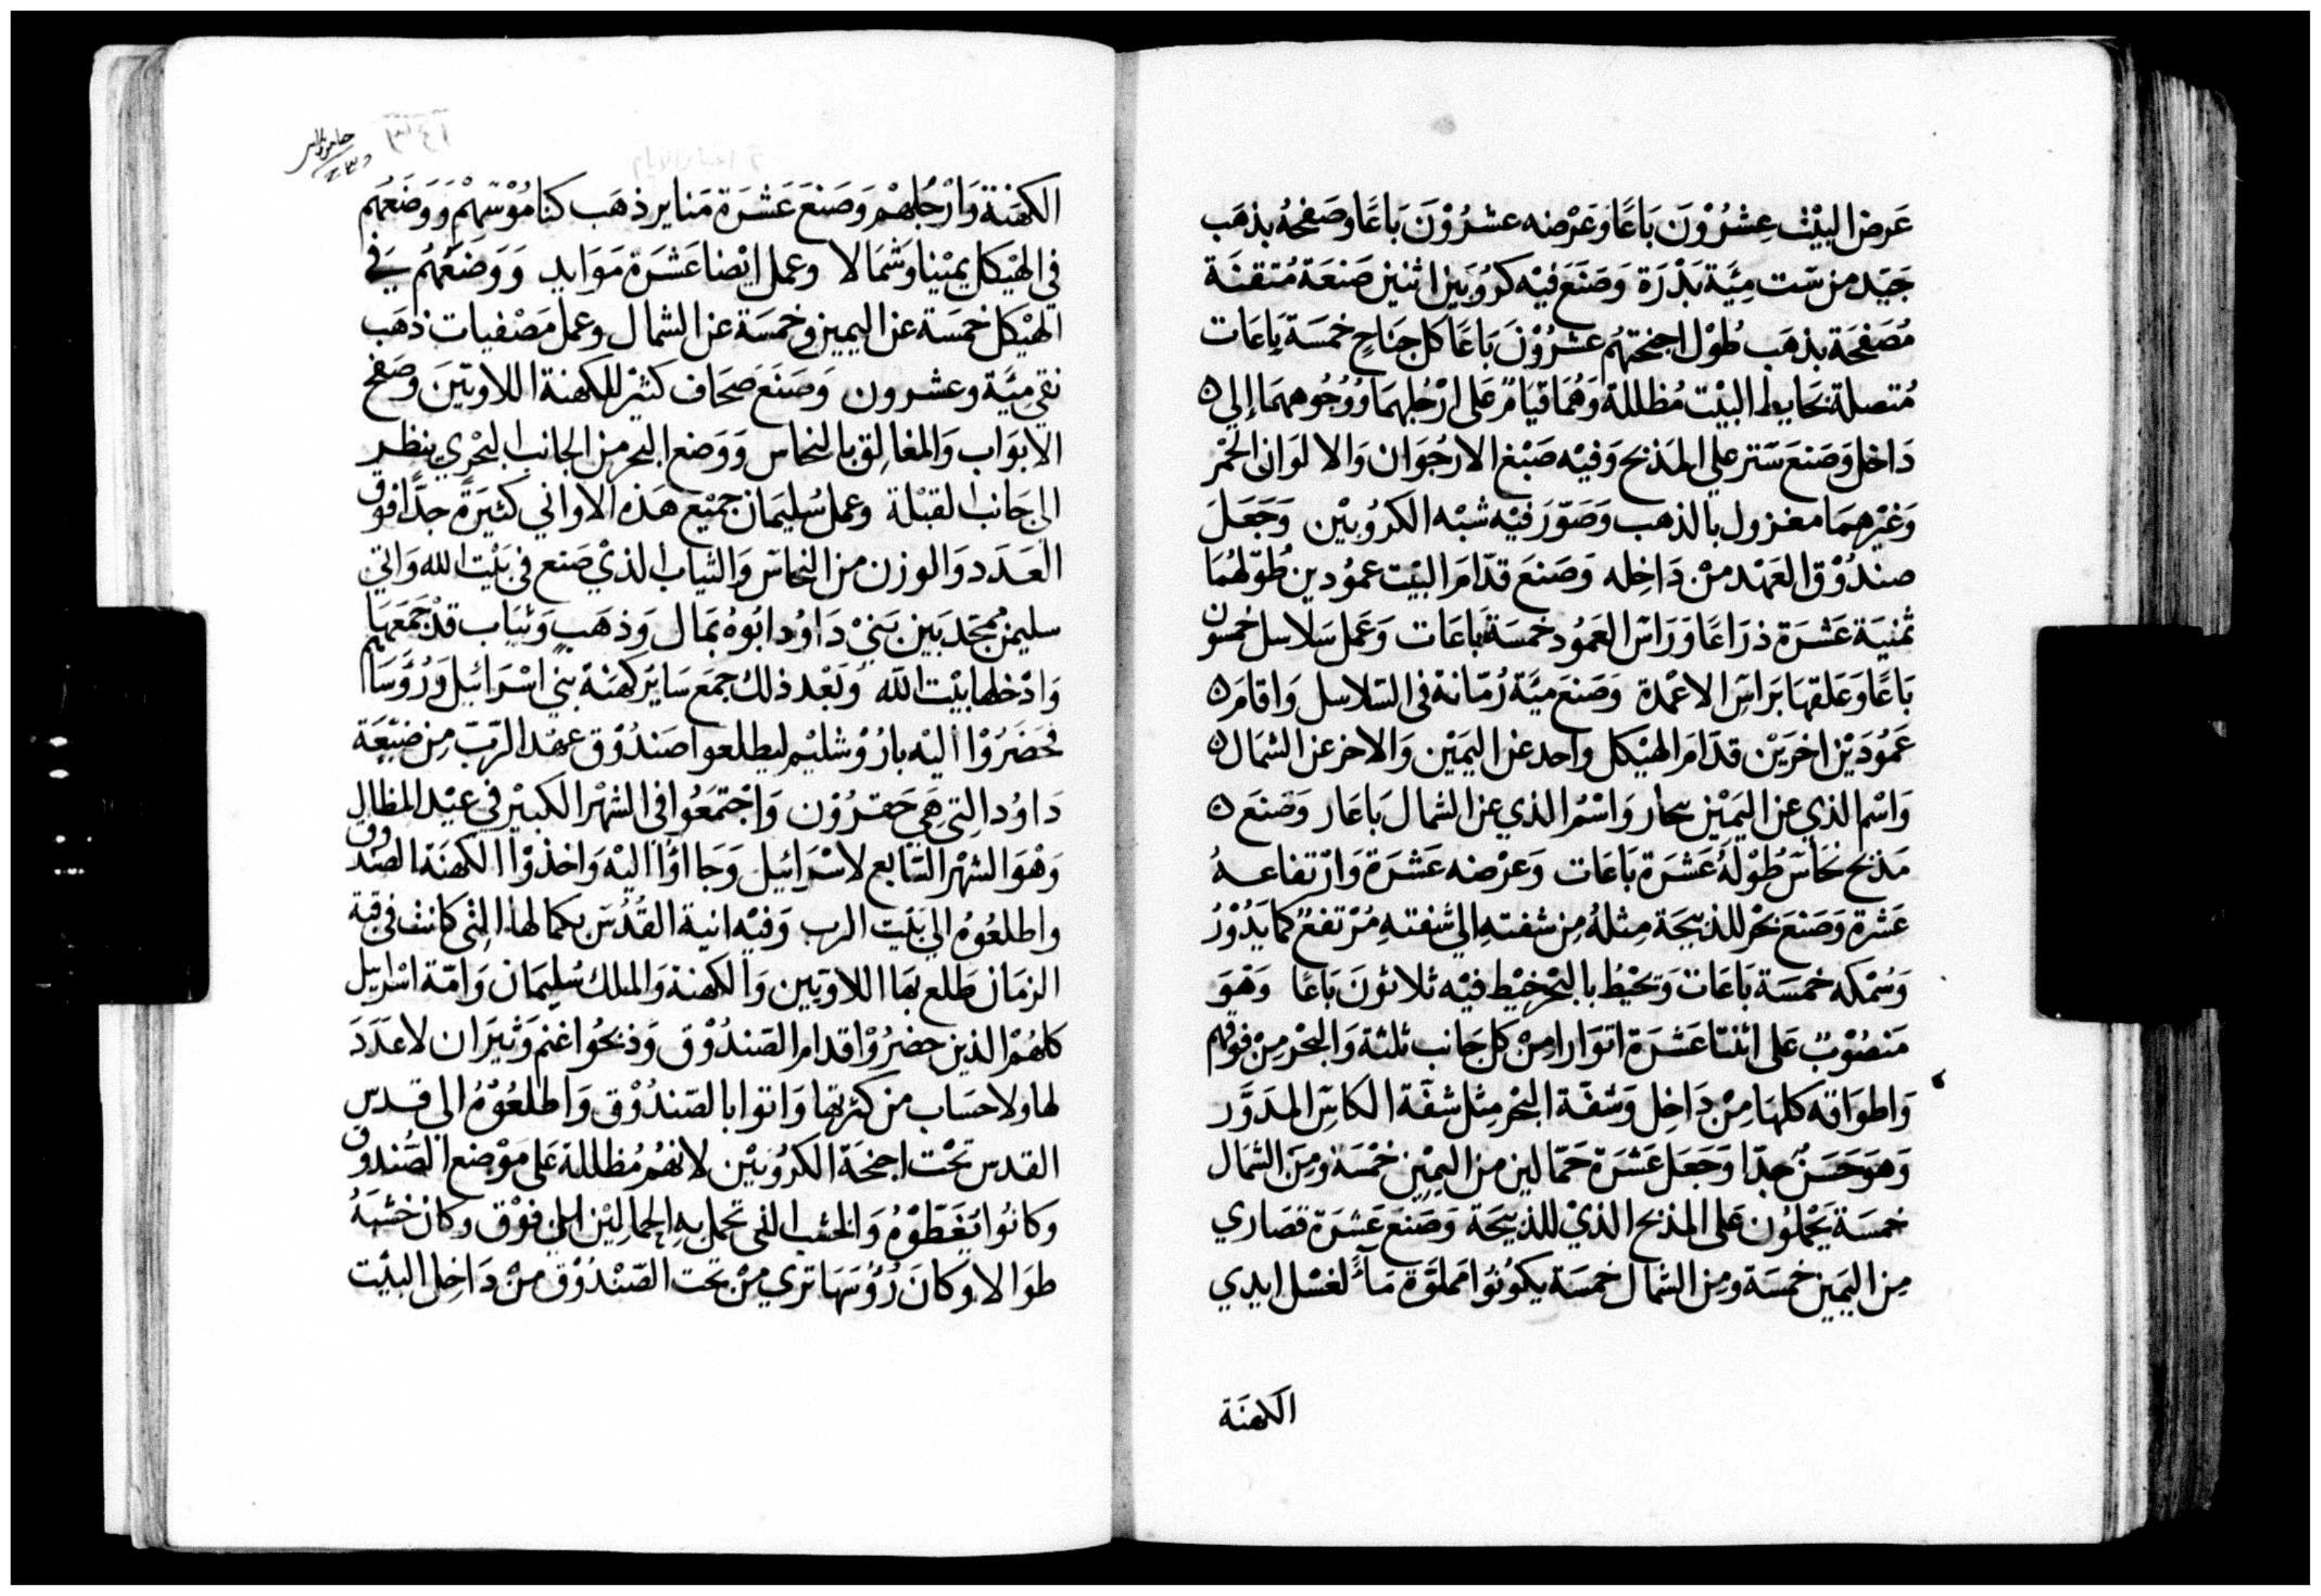 عَرض البيْت عِشرُوْنَ بَاعًا وَعَرْضه عشرُوْنَ بَاعًا وصَفحهُ بذهَب
جَيّد من سّت مِيَّة بَدْرَة وَصَنَعَ فيْه كروُبَين اثنين صَنعَة مُتقنَة
مُصَفحَة بذهَب طوُل اجنحَتهُم عشرُوْنَ بَاعًا كل جنَاحٍ خمسَة بَاعَات
مُتصلة بحَايط البيْت مُظللة وَهُمَا قيَامٌ عَلى ارْجُلهمَا وَوُجُوههمَا إلي ه
دَاخل وَصَنعَ سّتر علي المذبح وَفيْه صَبْغ الارجُوَان وَالالوَان الحمْر
وَغيْرهمَا مغزول بالذهب وَصَوّرَ فيْه شبْه الكروُبيْن وَجَعَلَ
صندُوْق العَهْد منْ دَاخِله وَصَنعَ قدّامَ البيْت عموُدين طوُّلهُمَا
ثمنيَة عَشرَة ذرَاعًا وَرَاسّ العَمُود خمسَة بَاعَات وَعَمل سَلاسل خمسُون
بَاعًا وَعَلقهَا برَاسِ الاعْمدة وَصَنعَ ميَّة رُمّانة فى السّلاسل وَاقامَ ه
عَمُودَيْن اخرَيْن قدَامَ الهيْكل واحد عن اليَمَيْن وَالاخر عن الشمَال ه
وَاسْم الذي عن اليَمَيْن سحار وَاسْمُ الذي عن الشمال بَاعَار وَصَنَعَ ه
مَذبح نحَاسّ طوُلهُ عَشرَة بَاعَات وَعرْضه عَشرَة وَارْتفاعهُ
عَشرة وَصَنَعَ بحْر للذبيحَة مِثلهُ مِن شفتهِ الي شفتهِ مُرْتفعٌ كما يَدُوْرُ
وَسُمْكه خمسَة بَاعَات وَتحيْطُ بالبحْر خيْط فيْه ثلاثوُنَ بَاعًا وَهوَ
مَنصُوْبٌ عَلى اثنتَا عَشرَة اثوَارا منْ كل جَانب ثلثة وَالبحْر منْ فوقهُم
وَاطوَاقه كلهَا مِنْ دَاخِل وَشفَة البحْر مِثل شفَة الكاسِّ المدَوَّر
وَهوَ حَسَنٌ جدّا وَجَعَل عَشرَة حَمّالين من اليمِيْن خمْسَة وَمِنَ الشمَال
خمسَة يَحْملوُن عَلى المذبح الذيْ للذبيحَة وَصَنعَ عَشرَة قصَاري
مِن اليَمَين خمسَة ومِن الشمال خمسَة يكوُنوُا مَملوَّة مَآءً لغسْل ايدي
الكهنَة
الكهَنة وَارْجُلهمْ وَصَنعَ عَشرَة مَناير ذهَب كنامُوْسّهمْ وَوَضَعُهم
في الهيْكل يميْنا وَشمَالا وعمل ايْضا عَشرَة مَوَايد وَوَضَعَهُم في
الهيْكل خمسَة عن اليمين وخمسَة عن الشمال وعمل مَصْفيات ذهَب
نقي ميَّة وعشرون وَصَنعَ صحَاف كثيْر للكهنة اللاويّين وَصَفح
الابوَاب وَالمغالِق بالنحاس وَوَضع البحر من الجانب البحْري ينظر
الى جَانب القبْلة وعمل سُليمَان جميْع هَذه الاواني كثيَرَةً جدًّا فوق
العَدَد وَالوزن من النحَاسّ وَالثياب الذيْ صَنع في بَيْت الله وَاتي
سليمن بمجَد بَين بَنيْ دَاوُد ابُوهُ بمَال وَذهَبٍ وَثيَاب قدْ جَمَعَهَا
وَادْخلها بيْت الله وَبَعْد ذلك جمَع سَايَر كهَنة بني اسْرَائيل وَرُؤَسَاهم
فحَضَرُوْا اليْه بارُوْشليْم ليطلعوا صَندُوْق عهْد الرّبّ مِن ضيْعَة
دَاوُد التِي هَي حَقرُوْن وَاجْتمَعُوا في الشهْر الكبيْر في عيْد المظال
وَهوَ الشهْر السّابع لاسْرَائيل وَجَااؤُا اليْه وَاخذوْا الكهنَة الصّندوق
واطلعُوهُ الي بَيْت الرب وَفيْه انية القُدُسّ بكمالها التِي كانت في قبة
الزمَان طلع بهَا اللاويّين وَالكهنة وَالملك سُليمَان وَامّة اسْرايل
كلهُمْ الذين حضرُوْا قدام الصّندُوْق وَذبحُوا غنم وَثيرَان لا عَدَدَ
لها ولا حسَاب من كثرتها وَاتوا بالصّندُوْق وَاطلعُوْهُ الى قدسّ
القدس تحْت اجنحَة الكروُبيْن لانهُم مُظللة عَلى مَوْضع الصُّندوق
وَكانوُا يُغَطّوْهُ وَالخشب التي تحمل بهِ الحمالِيْن الي فوْق وكان خشبَهُ
طوَالا وَكانَ رُؤسَهَا ترى منْ تحت الصّنْدُوْق منْ دَاخِل البيْت